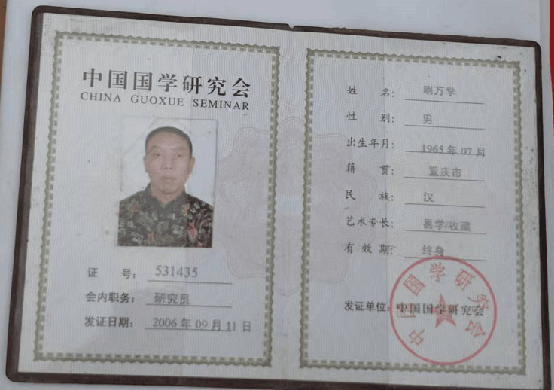 中国国学研究会
CHINA GUOXUE SEMINAR
证 号: 531435
会内职务: 研究员
发证日期: 2006 年 09 月 11 日
姓 名:
性 别: 男
出生年月: 1965 年 07 月
籍 贯: 重庆市
民 族: 汉
艺术专长: 易学/收藏
有 效 期: 终身
发证单位: 中国国学研究会
中国国学研究会